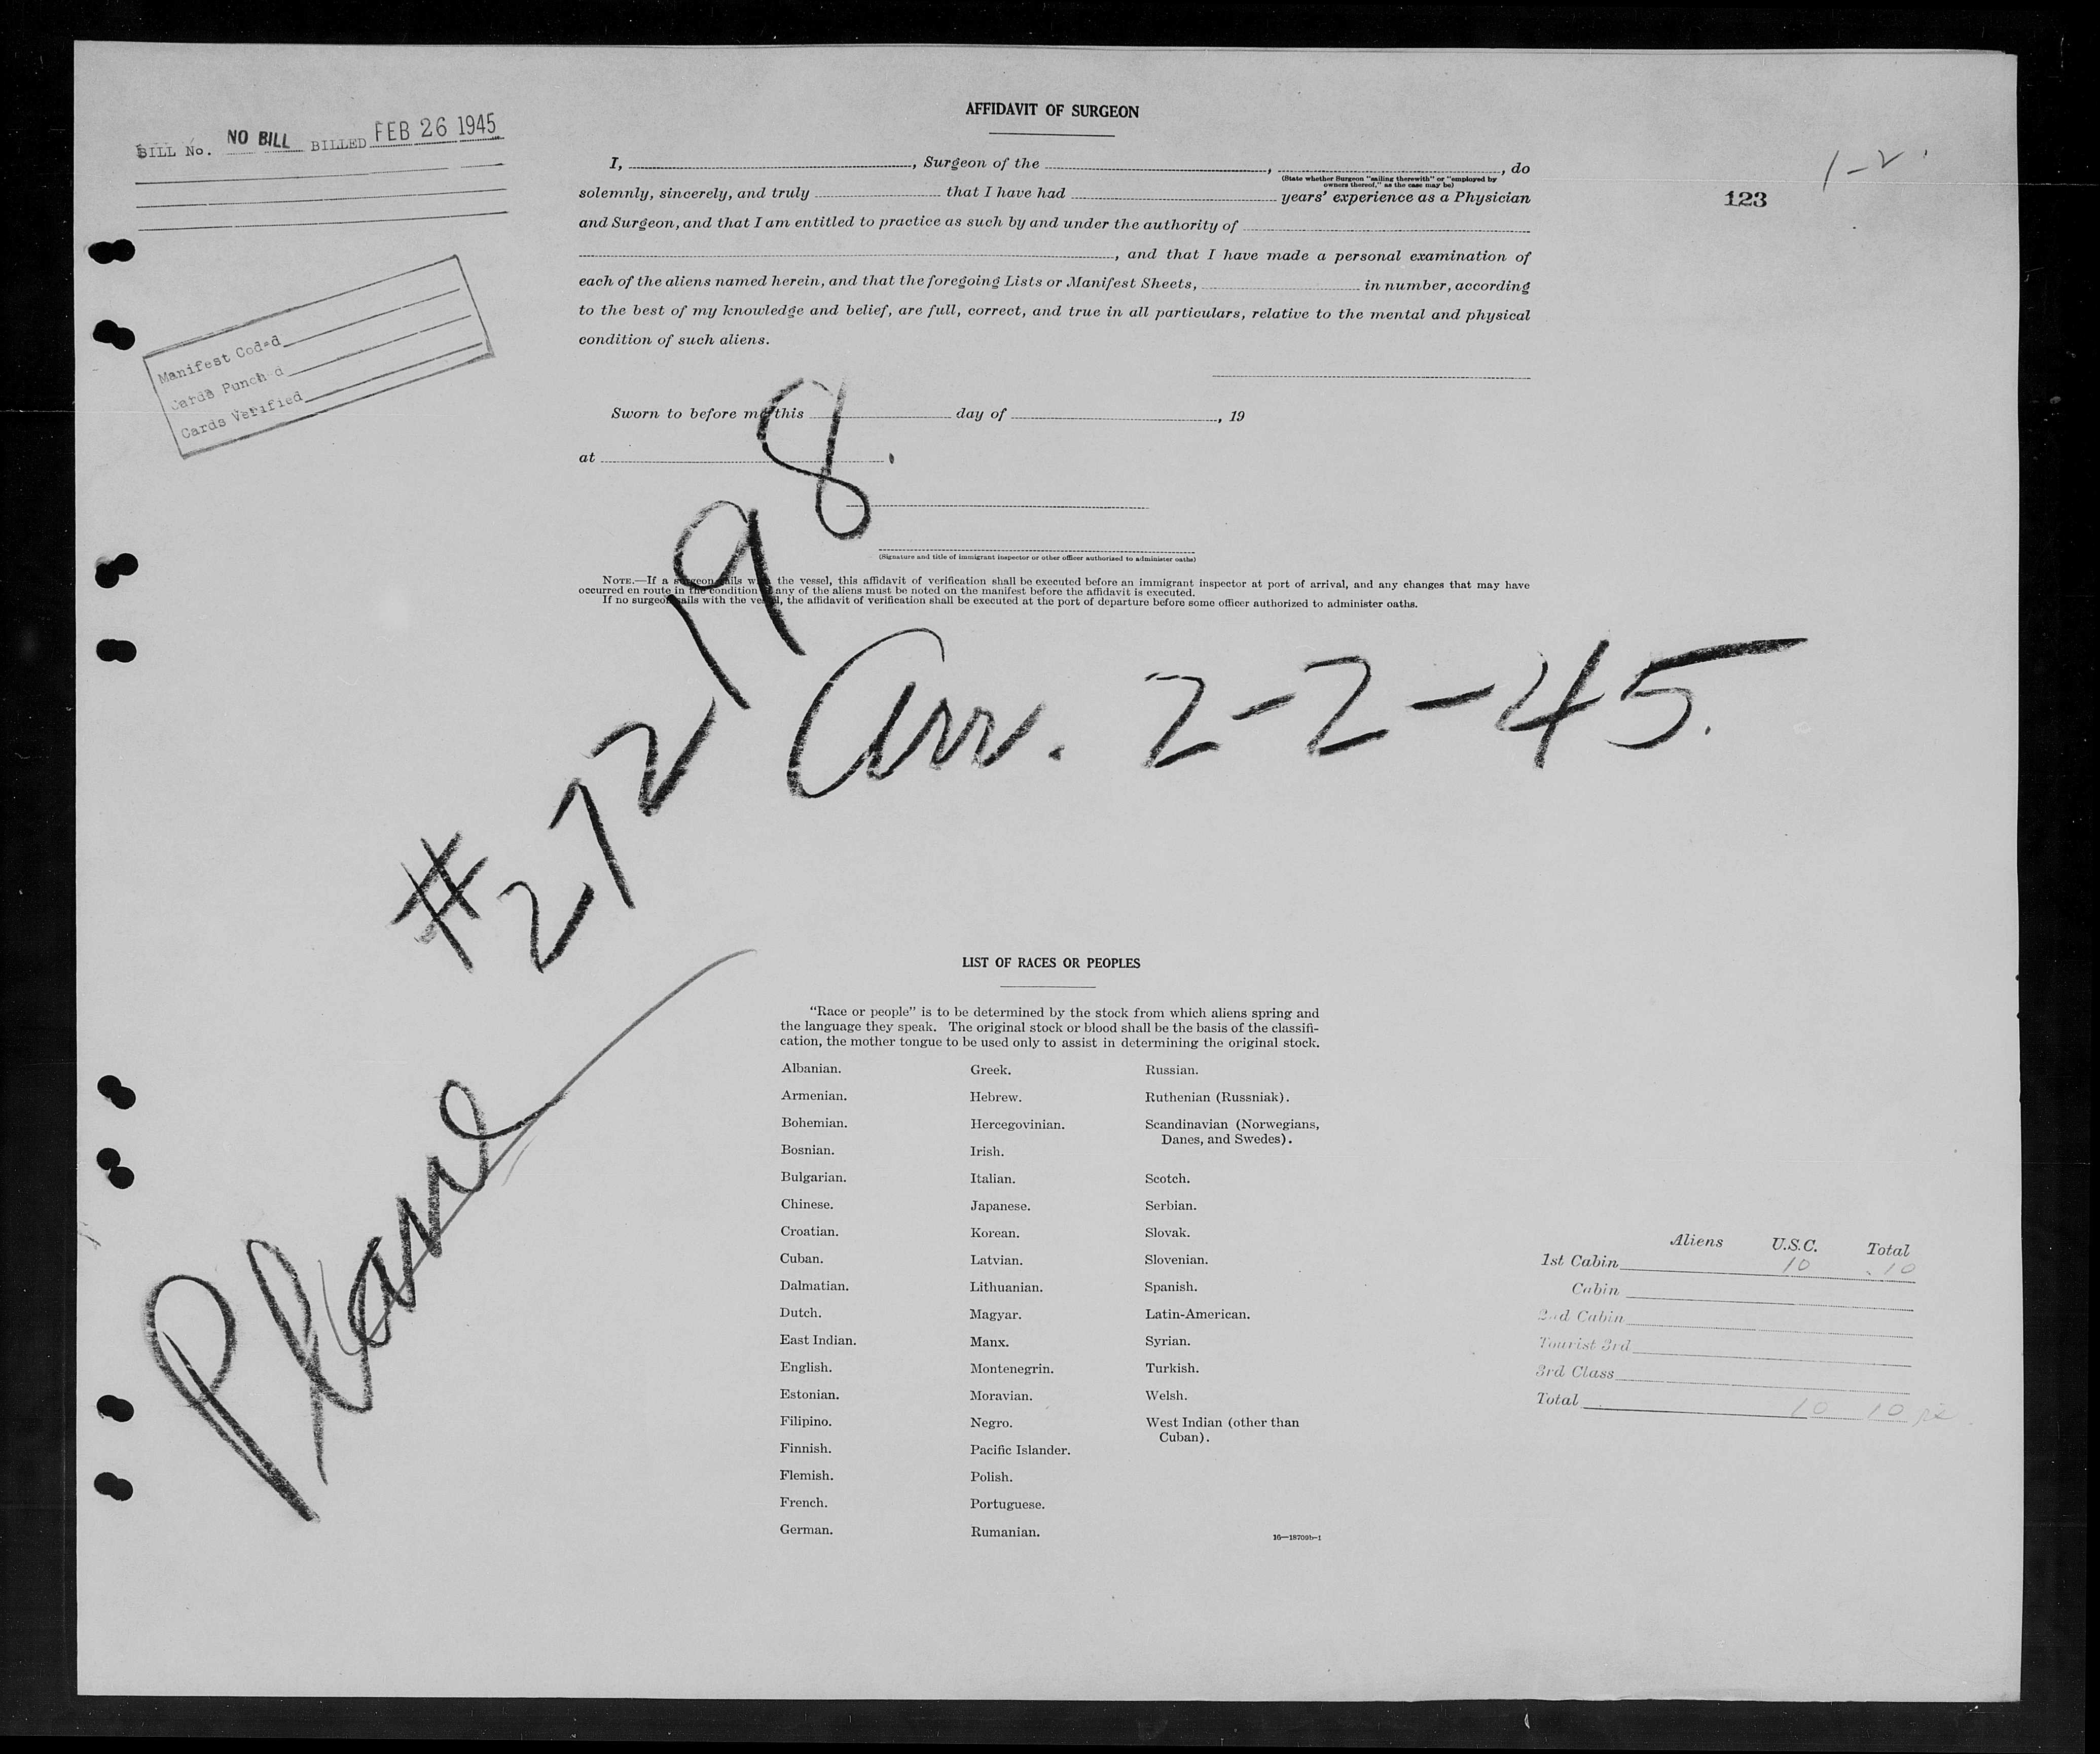 AFFIDAVIT OF SURGEON
BILL No. NO BILL BILLED FEB 26 1945
I, , Surgeon of the , , do
(State whether Surgeon "sailing therewith" or "employed by
owners thereof," as the case may be)
solemnly, sincerely, and truly that I have had years' experience as a Physician
and Surgeon, and that I am entitled to practice as such by and under the authority of
, and that I have made a personal examination of
each of the aliens named herein, and that the foregoing Lists or Manifest Sheets, in number, according
to the best of my knowledge and belief, are full, correct, and true in all particulars, relative to the mental and physical
condition of such aliens.
1-2.
123
Manifest Coded
Cards Punched
Cards Verified
Sworn to before me this day of , 19
at
(Signature and title of immigrant inspector or other officer authorized to administer oaths)
NOTE.—If a surgeon sails with the vessel, this affidavit of verification shall be executed before an immigrant inspector at port of arrival, and any changes that may have
occurred en route in the condition of any of the aliens must be noted on the manifest before the affidavit is executed.
If no surgeon sails with the vessel, the affidavit of verification shall be executed at the port of departure before some officer authorized to administer oaths.
#272198.
Arr. 2-2-45.
Plane
LIST OF RACES OR PEOPLES
"Race or people" is to be determined by the stock from which aliens spring and
the language they speak. The original stock or blood shall be the basis of the classifi-
cation, the mother tongue to be used only to assist in determining the original stock.
Albanian.
Armenian.
Bohemian.
Bosnian.
Bulgarian.
Chinese.
Croatian.
Cuban.
Dalmatian.
Dutch.
East Indian.
English.
Estonian.
Filipino.
Finnish.
Flemish.
French.
German.
Greek.
Hebrew.
Hercegovinian.
Irish.
Italian.
Japanese.
Korean.
Latvian.
Lithuanian.
Magyar.
Manx.
Montenegrin.
Moravian.
Negro.
Pacific Islander.
Polish.
Portuguese.
Rumanian.
Russian.
Ruthenian (Russniak).
Scandinavian (Norwegians,
Danes, and Swedes).
Scotch.
Serbian.
Slovak.
Slovenian.
Spanish.
Latin-American.
Syrian.
Turkish.
Welsh.
West Indian (other than
Cuban).
16—18709b-1
Aliens U.S.C. Total
1st Cabin 10 10
Cabin
2nd Cabin
Tourist 3rd
3rd Class
Total 10 10